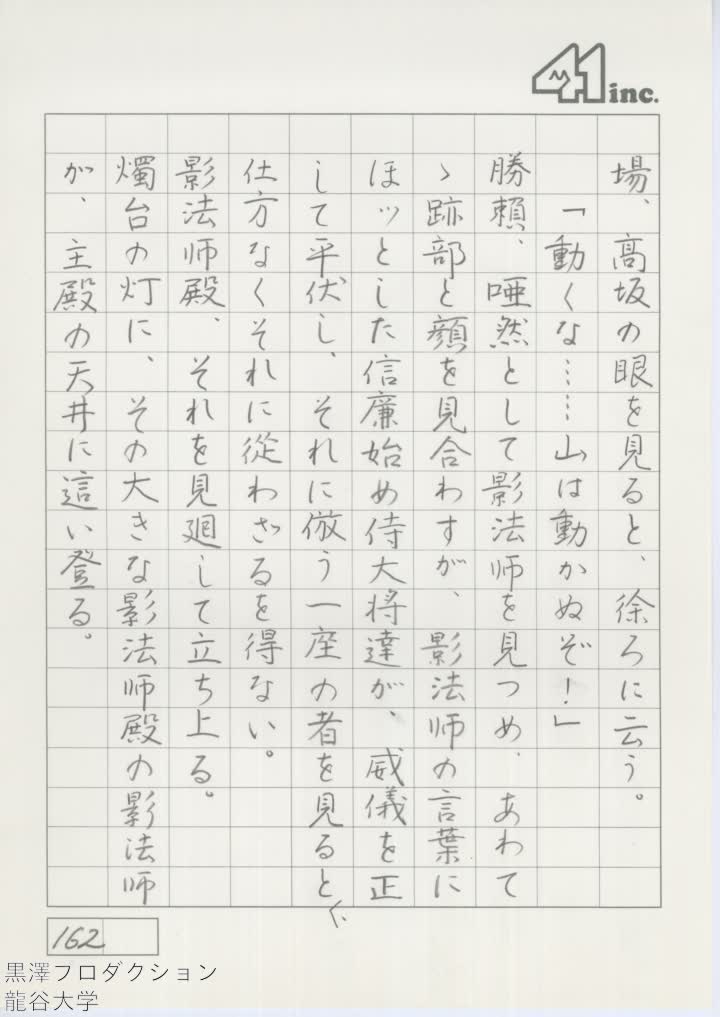 41inc.
場、高坂の眼を見ると、徐ろに云う。
「動くな……山は動かぬぞ！」
勝頼、唖然として影法師を見つめ、あわて
ゝ跡部と顔を見合わすが、影法師の言葉に
ほッとした信廉始め侍大将達が、威儀を正
して平伏し、それに倣う一座の者を見ると、
仕方なくそれに従わざるを得ない。
影法師殿、それを見廻して立ち上る。
燭台の灯に、その大きな影法師殿の影法師
が、主殿の天井に這い登る。
162
黒澤プロダクション
龍谷大学